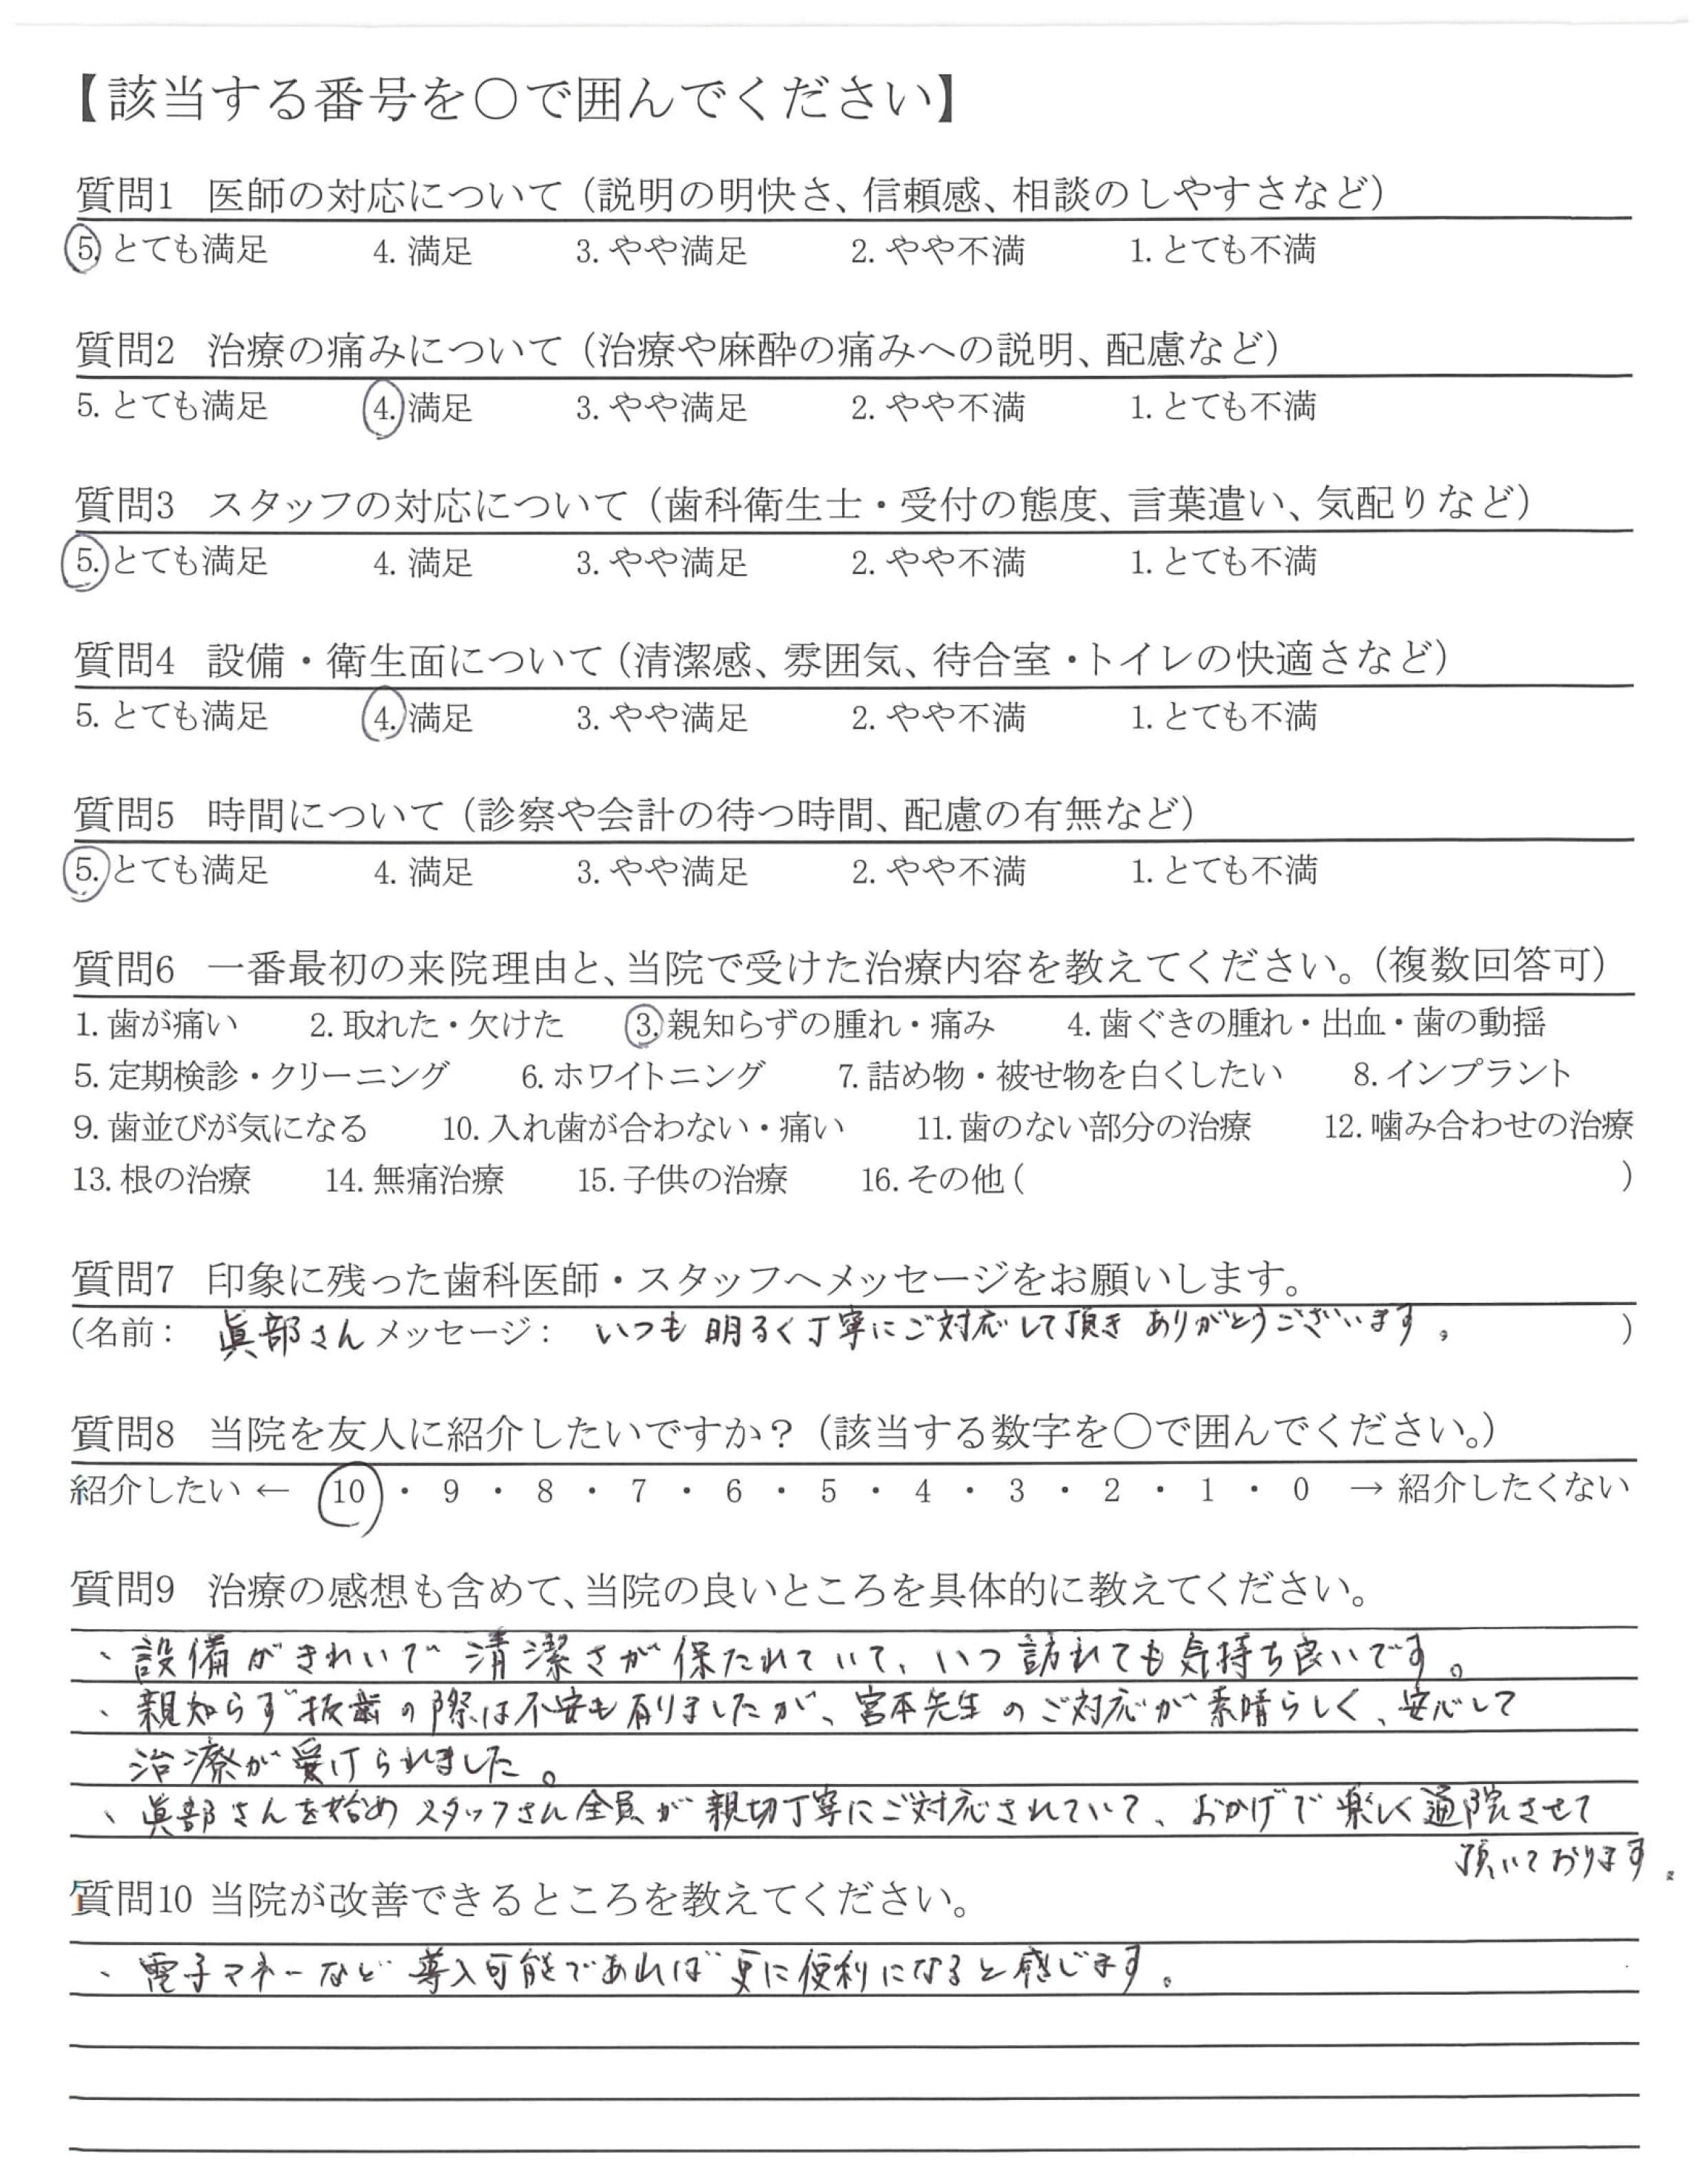 【該当する番号を〇で囲んでください】
質問1 医師の対応について（説明の明快さ、信頼感、相談のしやすさなど）
5. とても満足 4. 満足 3. やや満足 2. やや不満 1. とても不満
質問2 治療の痛みについて（治療や麻酔の痛みへの説明、配慮など）
5. とても満足 4. 満足 3. やや満足 2. やや不満 1. とても不満
質問3 スタッフの対応について（歯科衛生士・受付の態度、言葉遣い、気配りなど）
5. とても満足 4. 満足 3. やや満足 2. やや不満 1. とても不満
質問4 設備・衛生面について（清潔感、雰囲気、待合室・トイレの快適さなど）
5. とても満足 4. 満足 3. やや満足 2. やや不満 1. とても不満
質問5 時間について（診察や会計の待つ時間、配慮の有無など）
5. とても満足 4. 満足 3. やや満足 2. やや不満 1. とても不満
質問6 一番最初の来院理由と、当院で受けた治療内容を教えてください。（複数回答可）
1. 歯が痛い 2. 取れた・欠けた 3. 親知らずの腫れ・痛み 4. 歯ぐきの腫れ・出血・歯の動揺
5. 定期検診・クリーニング 6. ホワイトニング 7. 詰め物・被せ物を白くしたい 8. インプラント
9. 歯並びが気になる 10. 入れ歯が合わない・痛い 11. 歯のない部分の治療 12. 噛み合わせの治療
13. 根の治療 14. 無痛治療 15. 子供の治療 16. その他（ ）
質問7 印象に残った歯科医師・スタッフへメッセージをお願いします。
（名前： 眞部さん メッセージ： いつも明るく丁寧にご対応して頂きありがとうございます。 ）
質問8 当院を友人に紹介したいですか？（該当する数字を〇で囲んでください。）
紹介したい ← 10 ・ 9 ・ 8 ・ 7 ・ 6 ・ 5 ・ 4 ・ 3 ・ 2 ・ 1 ・ 0 → 紹介したくない
質問9 治療の感想も含めて、当院の良いところを具体的に教えてください。
、設備がきれいで清潔さが保たれていて、いつ訪れても気持ち良いです。
、親知らず抜歯の際は不安も有りましたが、宮本先生のご対応が素晴らしく、安心して
治療が受けられました。
、眞部さんを始めスタッフさん全員が親切丁寧にご対応されていて、おかげで楽しく通院させて
頂いております。
質問10 当院が改善できるところを教えてください。
、電子マネーなど導入可能であれば更に便利になると感じます。